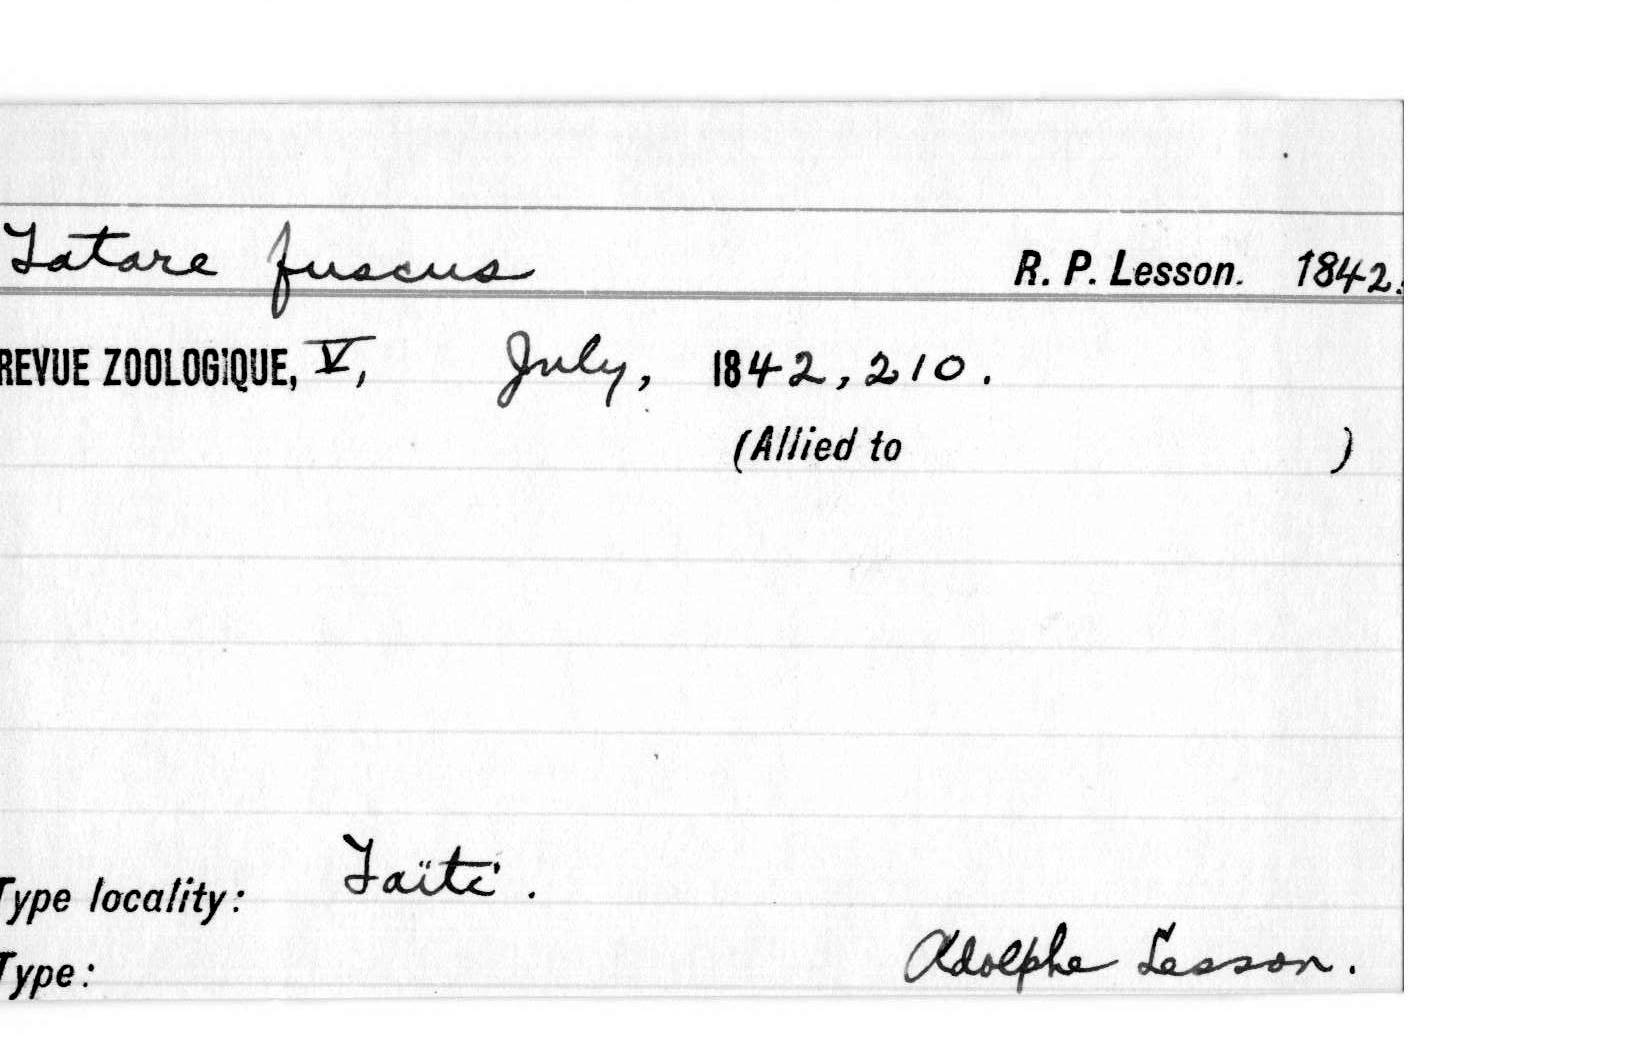 Tatare fuscus R. P. Lesson. 1842.
REVUE ZOOLOGIQUE, V, July, 1842, 210.
(Allied to )
Type locality: Taïti.
Adolphe Lesson.
Type: